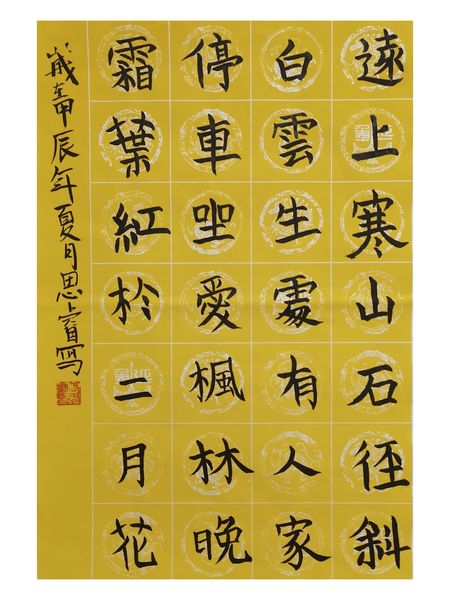 遠上寒山石径斜
白雲生處有人家
停車坐愛楓林晚
霜葉紅於二月花
歲在甲辰年夏月思写